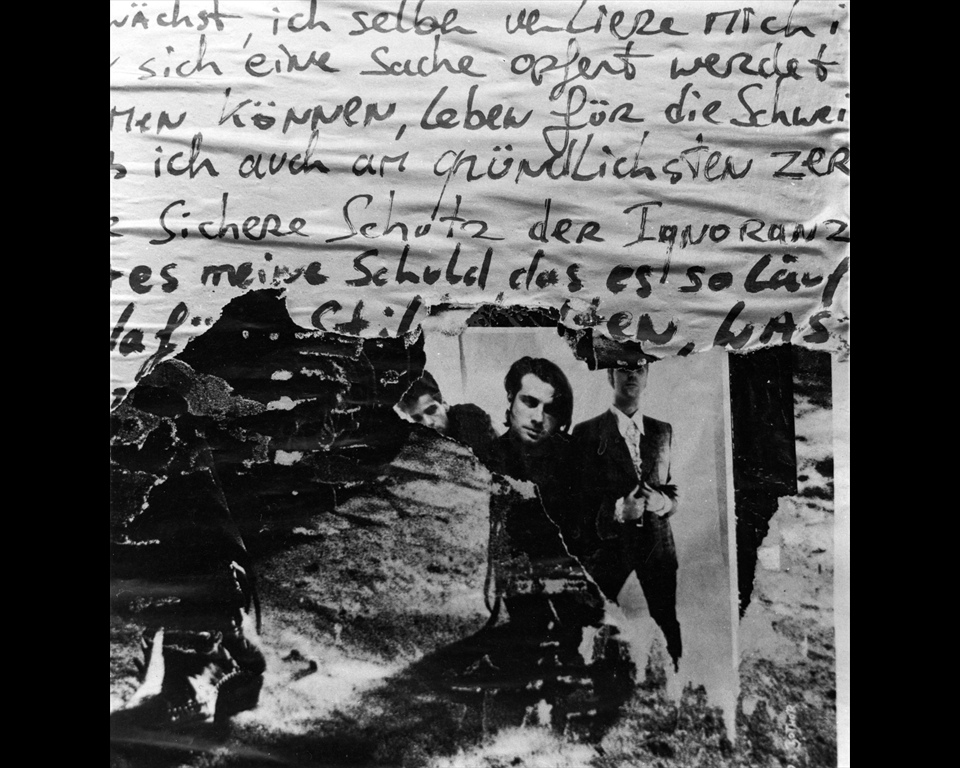 wächst, ich selbst verliere mich i
sich eine Sache opfert werdet
men können, leben für die Schwei
ich auch am gründlichsten zer
Sichere Schutz der Ignoranz
es meine Schuld das es so läuf
dafü Stil ten, was